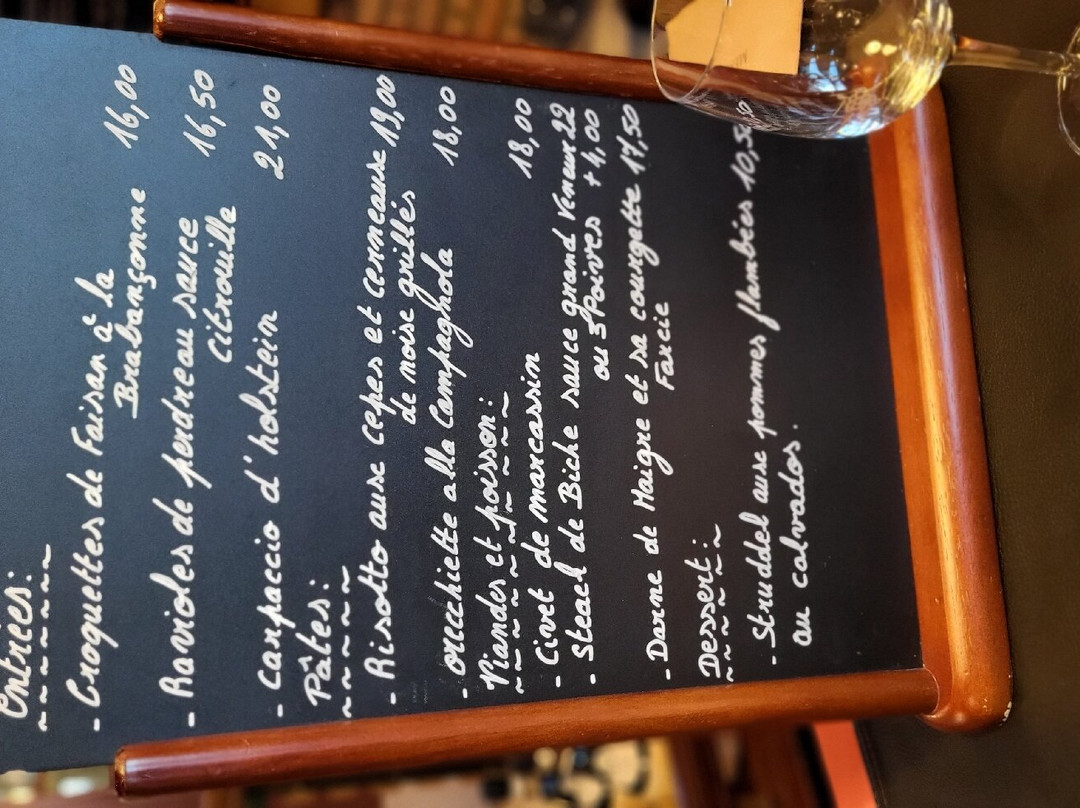 Entrées:
- Croquettes de Faisan à la 16,00
Brabançonne
- Ravioles de perdreau sauce 16,50
citrouille
- Carpaccio d'holstein 21,00
Pâtes:
- Risotto aux cepes et cerneaux 19,00
de noix grillés
- Orecchiette alla Campaghola 18,00
Viandes et poisson:
- Civet de marcassin 18,00
- Steack de Biche sauce grand Veneur 22
ou 3 Poivres + 4,00
- Darne de Maigre et sa courgette 17,50
Farcie
Dessert:
- Struddel aux pommes flambées 10,50
au calvados.